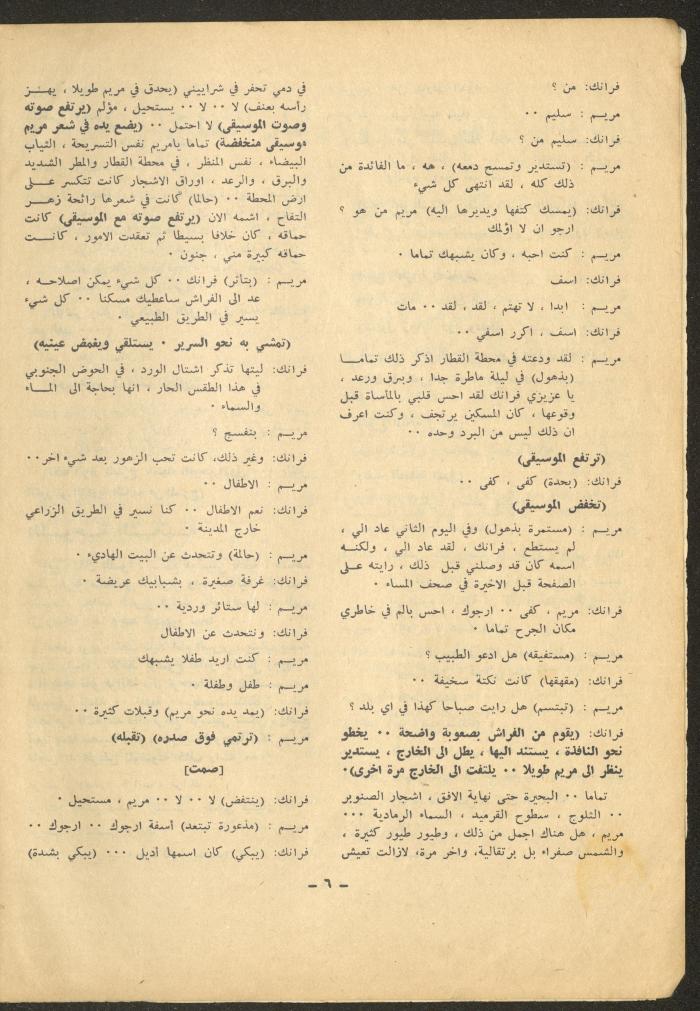 فرانك: من ؟
مريـم : سليم ٠٠
فرانك: سليم من ؟
مريـم : (تستدير وتمسح دمعه) ، هه ، ما الفائدة من
ذلك كله ، لقد انتهى كل شيء
فرانك: (يمسك كتفها ويديرها اليه) مريم من هو ؟
ارجو ان لا اؤلمك
مريـم : كنت احبه ، وكان يشبهك تماما ٠
فرانك: اسف
مريـم : ابدا ، لا تهتم ، لقد ، لقد ٠٠ مات
فرانك: اسف ، اكرر اسفي ٠٠
مريـم : لقد ودعته في محطة القطار اذكر ذلك تمامـــا
(بذهول) في ليلة ماطرة جدا ، وبرق ورعد ،
يا عزيزي فرانك لقد احس قلبي بالمأساة قبل
وقوعها ، كان المسكين يرتجف ، وكنت اعرف
ان ذلك ليس من البرد وحده ٠٠
(ترتفع الموسيقى)
فرانك: (بحدة) كفى ، كفى ٠٠
(تخفض الموسيقى)
مريـم : (مستمرة بذهول) وفي اليوم الثاني عاد الي ،
لم يستطع ، فرانك ، لقد عاد الي ، ولكنـه
اسمه كان قد وصلني قبل ذلك ، رايته علـى
الصفحة قبل الاخيرة في صحف المساء ٠
فرانك: مريم ، كفى ٠٠ ارجوك ، احس بالم في خاطري
مكان الجرح تماما ٠
مريـم : (مستفيقه) هل ادعو الطبيب ؟
فرانك: (مقهقها) كانت نكتة سخيفة ٠٠
مريـم : (تبتسم) هل رايت صباحا كهذا في اي بلد ؟
فرانك: (يقوم من الفراش بصعوبة واضحة ٠٠ يخطو
نحو النافلة ، يستند اليها ، يطل الى الخارج ، يستدير
ينظر الى مريم طويلا ٠٠ يلتفت الى الخارج مرة اخرى)٠
تماما ٠٠ البحيرة حتى نهاية الافق ، اشجار الصنوبر
٠٠ الثلوج ، سطوح القرميد ، السماء الرمادية ٠٠٠
مريم ، هل هناك اجمل من ذلك ، وطيور طيور كثيرة ،
والشمس صفراء بل برتقالية، واخر مرة، لازالت تعيش
في دمي تحفر في شراييني (يحدق في مريم طويلا ، يهـز
رأسه بعنف) لا ٠٠ لا ٠٠ يستحيل ، مؤلم (يرتفع صوته
وصوت الموسيقى) لا احتمل ٠٠ (يضع يده في شعر مريم
موسيقى منخفضة) تماما يامريم نفس التسريحة ، الثياب
البيضاء ، نفس المنظر ، في محطة القطار والمطر الشديد
والبرق ، والرعد ، اوراق الاشجار كانت تتكسر علـى
ارض المحطة ٠٠ (حالما) كانت في شعرها رائحة زهـر
التفاح ، اشمه الان (يرتفع صوته مع الموسيقى) كانت
حماقه ، كان خلافا بسيطا ثم تعقدت الامور ، كانـــت
حماقه كبيرة مني ، جنون ٠
مريـم : (بتأثر) فرانك ٠٠ كل شيء يمكن اصلاحـه ،
عد الى الفراش ساعطيك مسكنا ٠٠ كل شيء
يسير في الطريق الطبيعي ٠
(تمشي به نحو السرير ٠ يستلقي ويغمض عينيه)
فرانك: ليتها تذكر اشتال الورد ، في الحوض الجنوبي
في هذا الطقس الحار ، انها بحاجة الى المـــاء
والسماء ٠
مريـم : بنفسج ؟
فرانك: وغير ذلك، كانت تحب الزهور بعد شيء اخر٠٠
مريـم : الاطفال ٠٠
فرانك: نعم الاطفال ٠٠ كنا نسير في الطريق الزراعي
خارج المدينة ٠
مريـم : (حالمة) وتتحدث عن البيت الهاديء ٠
فرانك: غرفة صغيرة ، بشبابيك عريضة ٠
مريـم : لها ستائر وردية ٠٠
فرانك: ونتحدث عن الاطفال
مريـم : كنت اريد طفلا يشبهك
مريـم : طفل وطفلة ٠
فرانك: (يمد يده نحو مريم) وقبلات كثيرة ٠٠
مريـم : (ترتمي فوق صدره) (تقبله)
[صمت]
فرانك: (ينتفض) لا ٠٠ لا ٠٠ مريم ، مستحيل ٠
مريـم : (مذعورة تبتعد) أسفة ارجوك ٠٠ ارجوك ٠٠
فرانك: (يبكي) كان اسمها أديل ٠٠٠ (يبكي بشدة)
– ٦ –